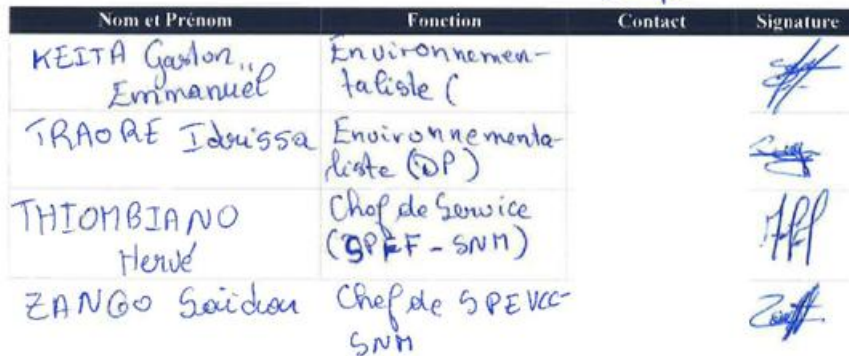 Nom et Prénom Fonction Contact Signature
KEITA Gaston Environnemen-
Emmanuel taliste (
TRAORE Idrissa Environnementa-
liste (DP)
THIOMBIANO Chef de Service
Hervé (SPEF-SNM)
ZANGO Saïdou Chef de SPEVCC-
SNM